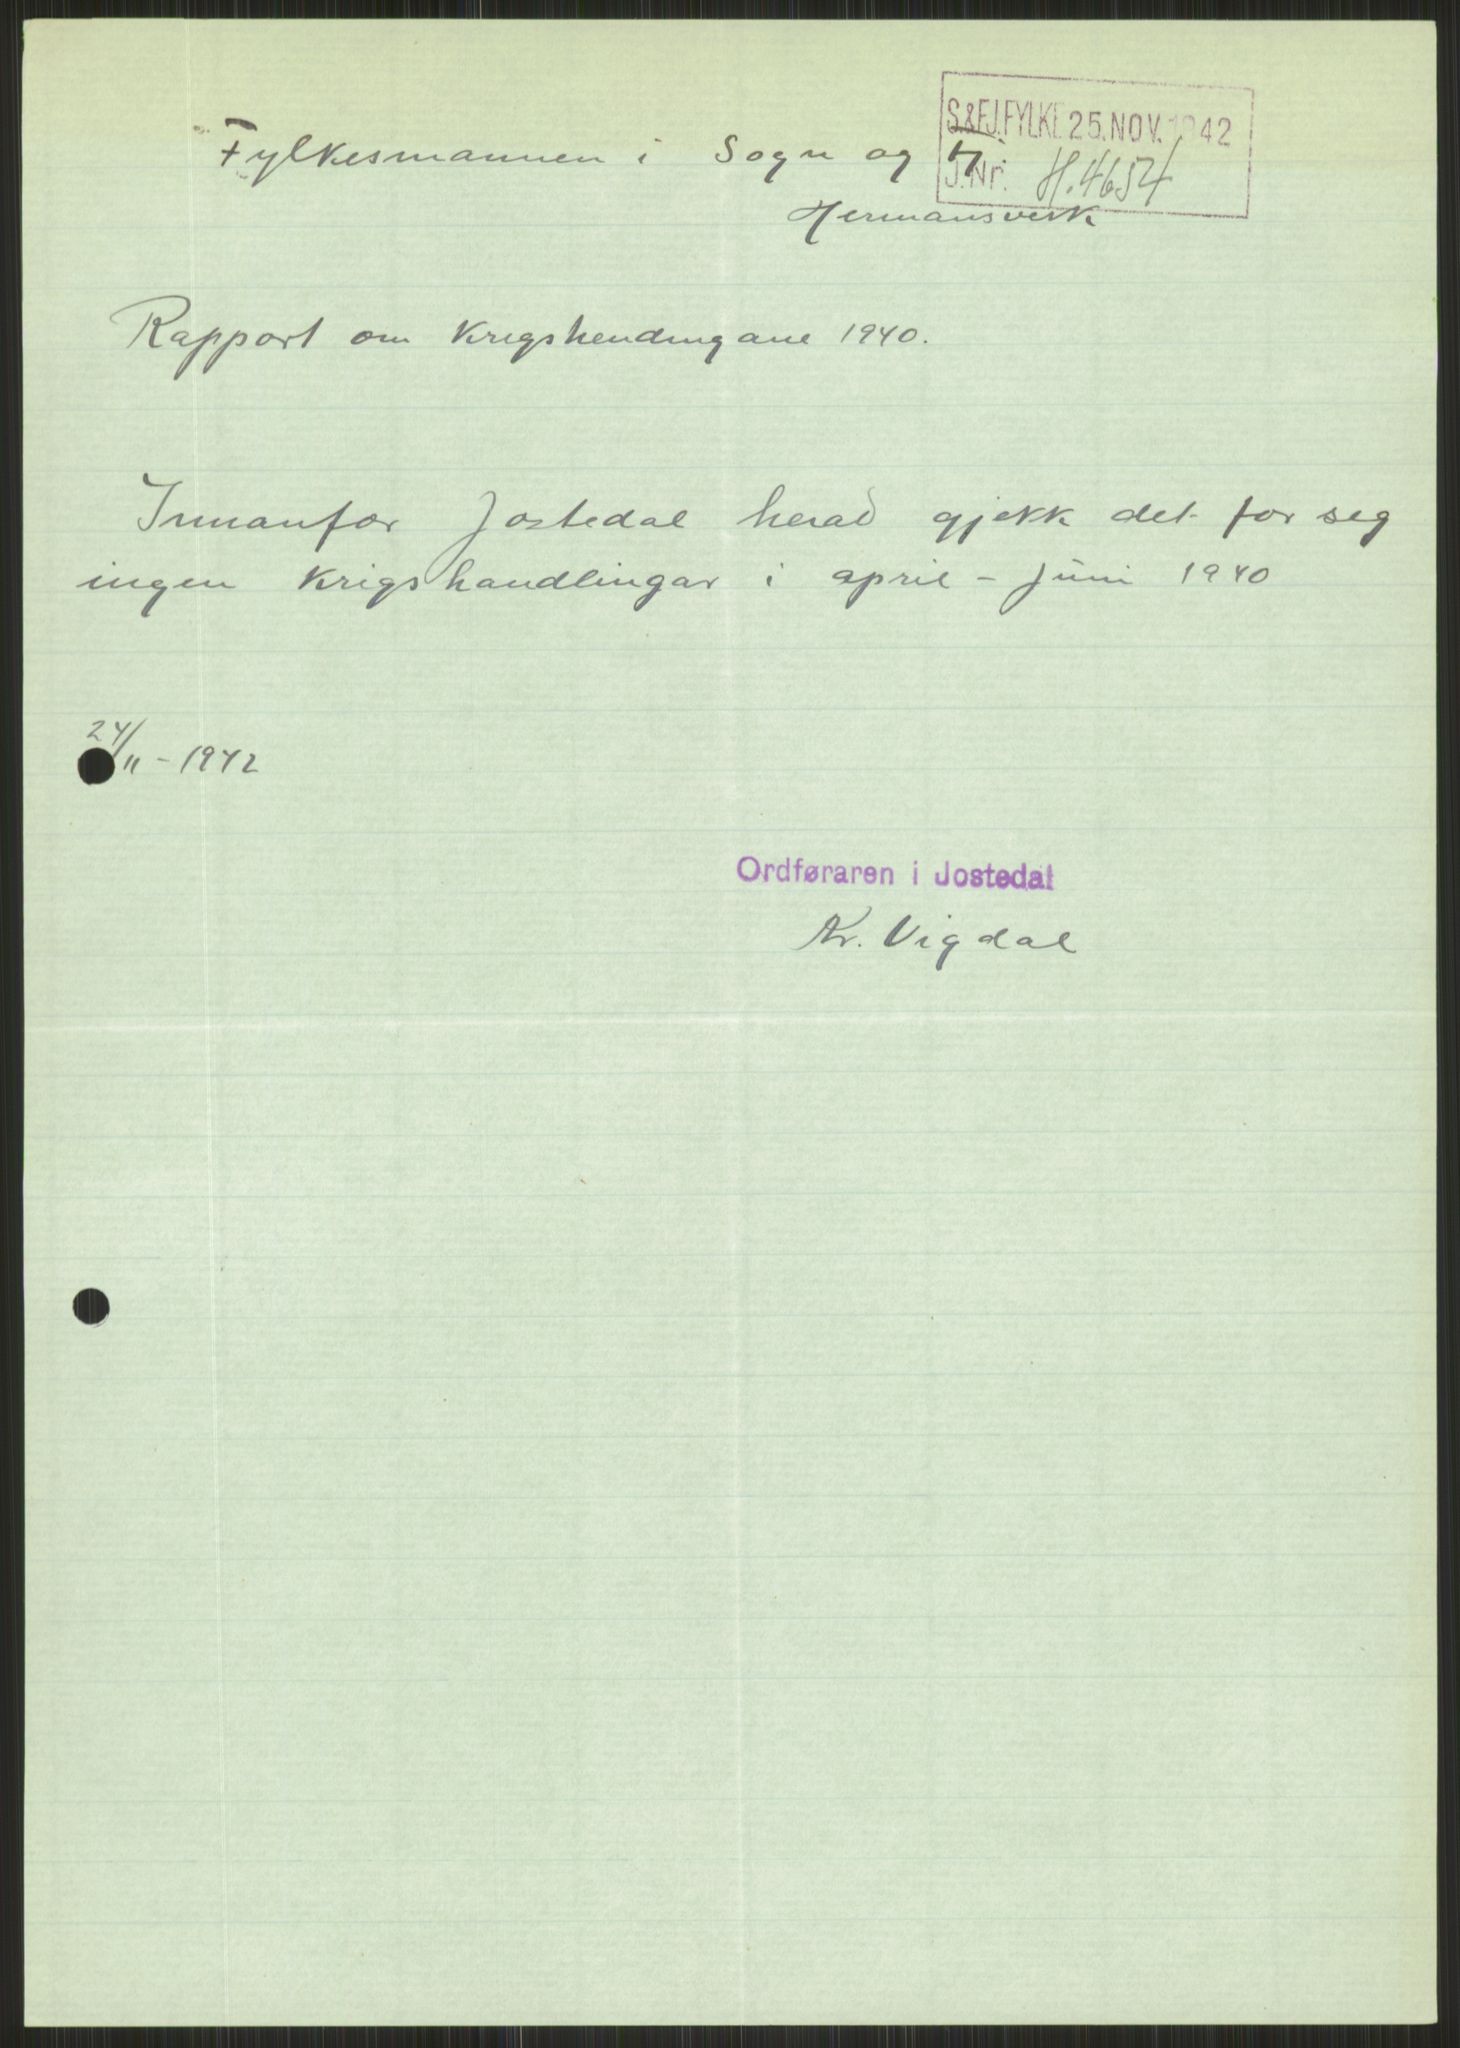 S.&FJ.FYLKE 25.NOV.1942
J.Nr. H.4654
Fylkesmannen i Sogn og Fj.
Hermansverk
Rapport om krigshendingane 1940.
Innanfor Jostedal herad gjekk det for seg
ingen krigshandlingar i april - juni 1940
24/11 - 1942
Ordføraren i Jostedal
Kr. Vigdal